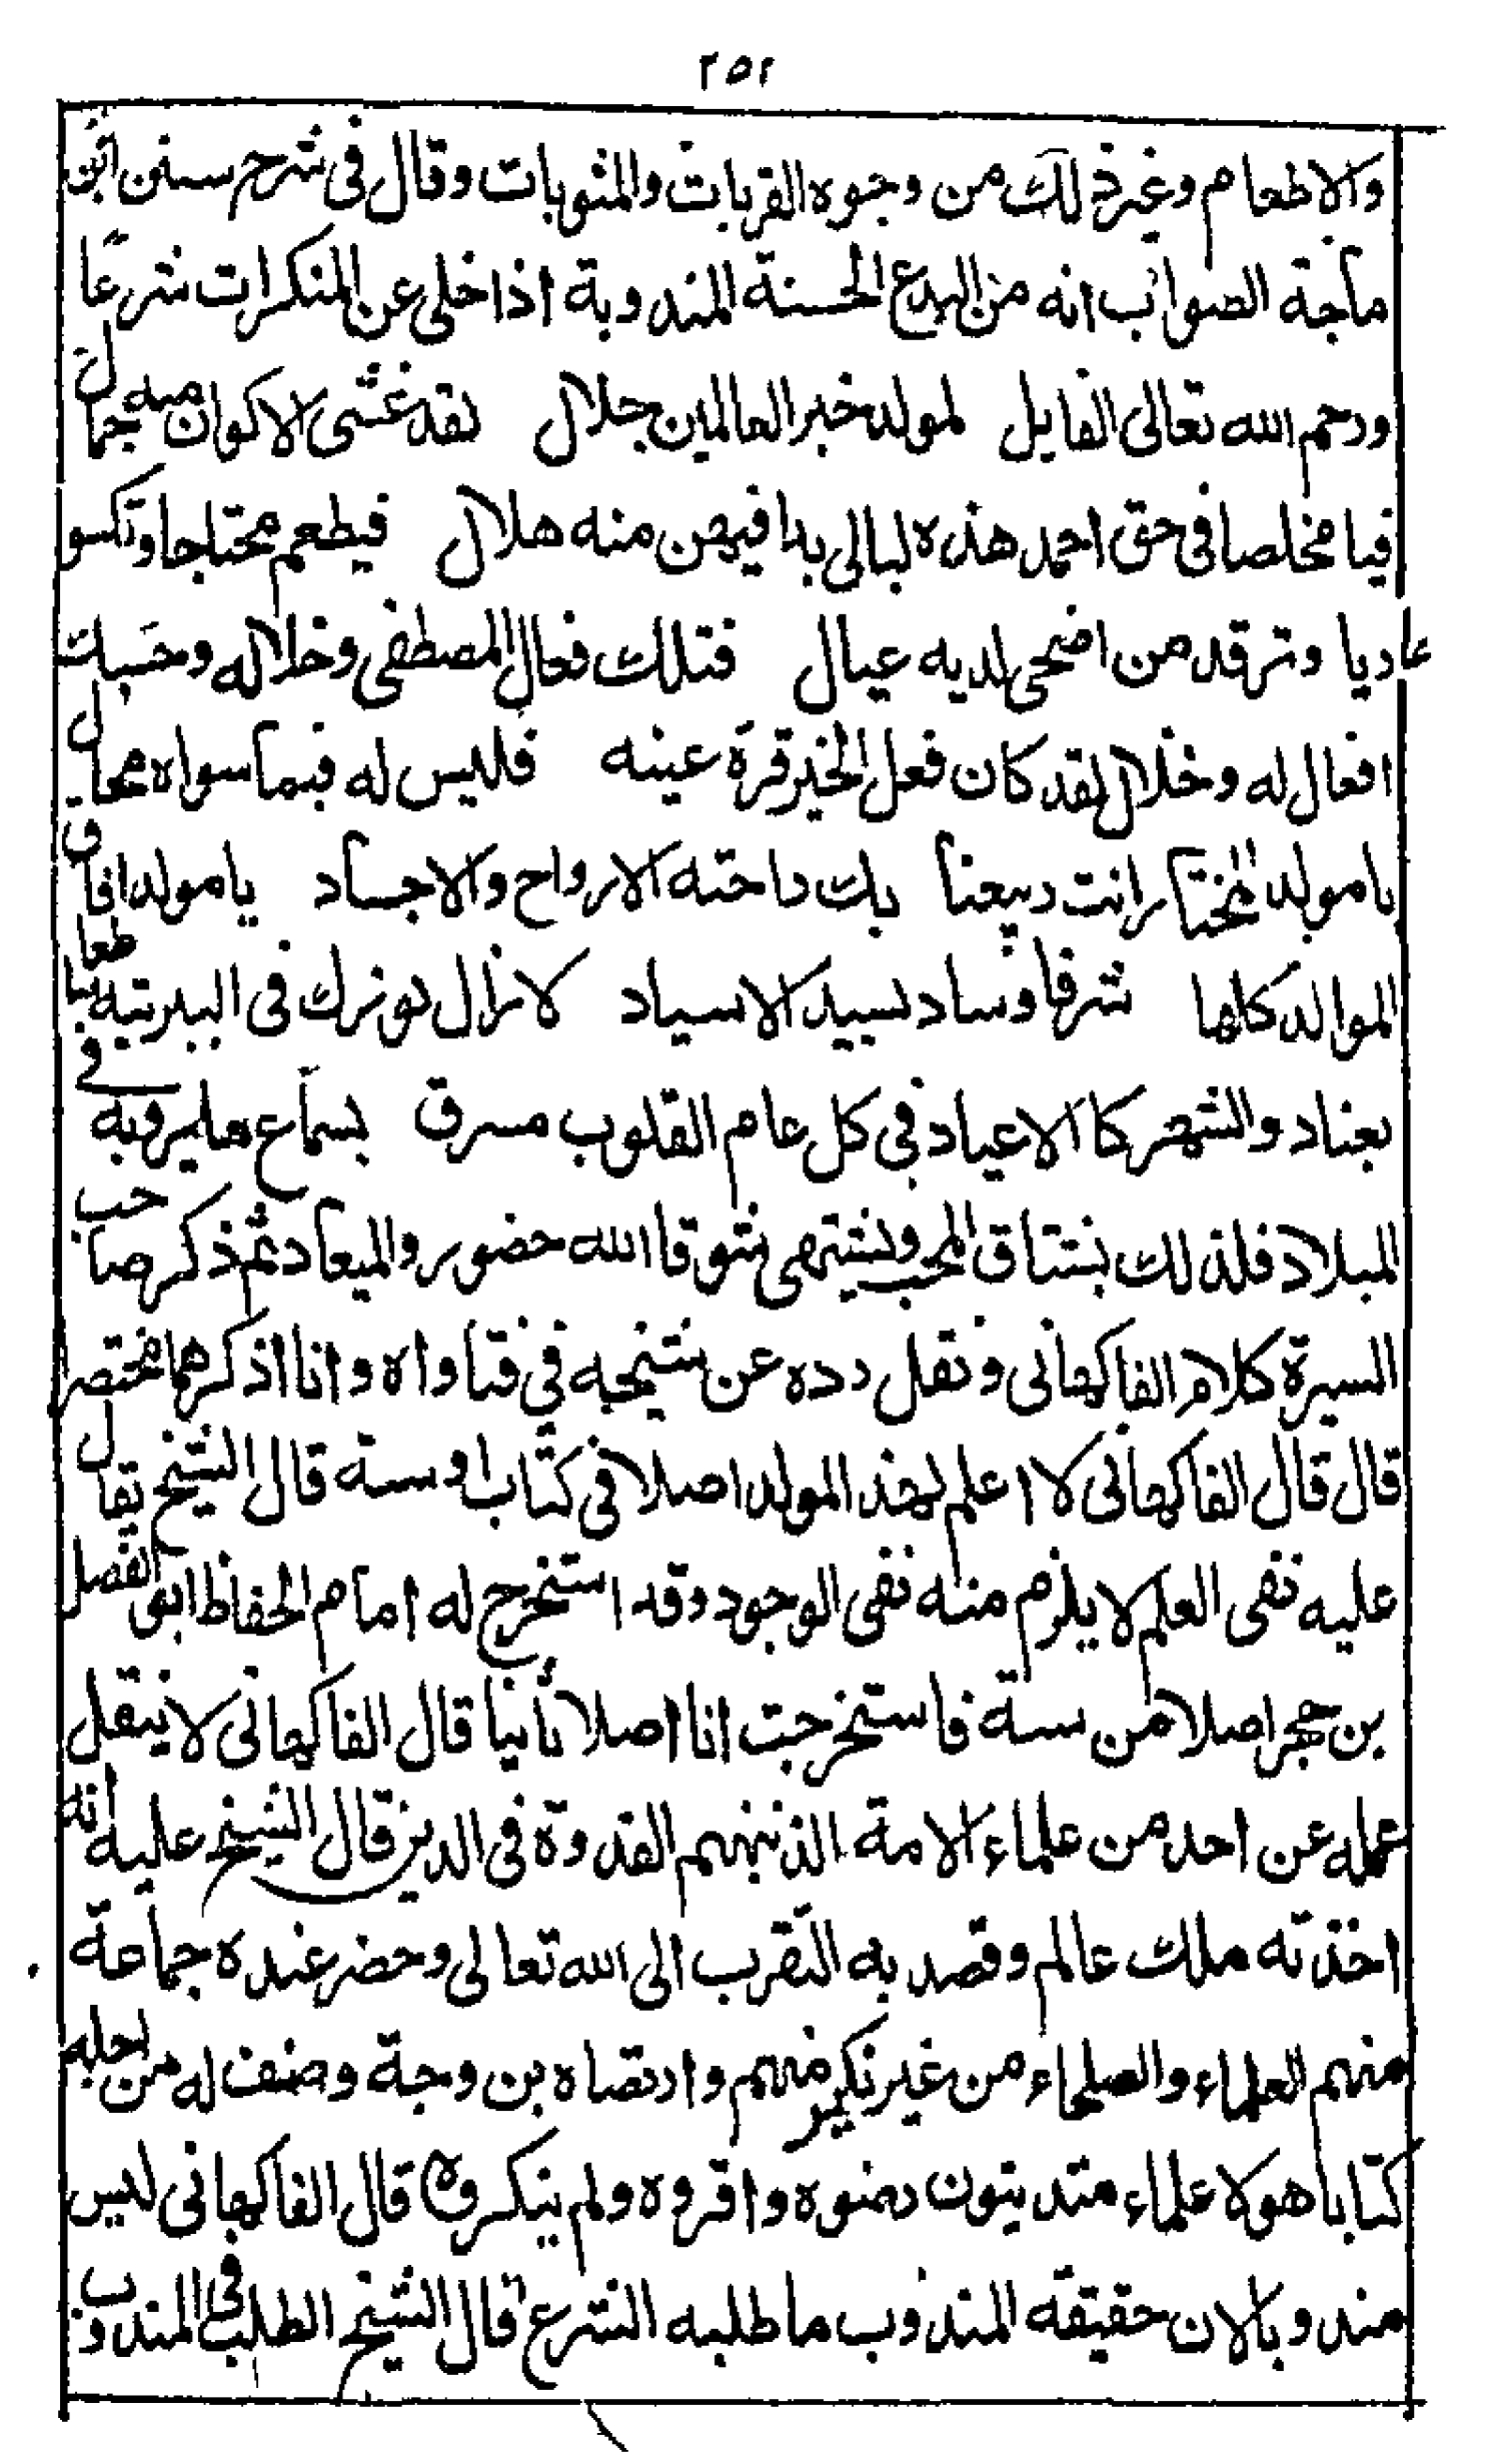 ٢٥٢
والاطعام وغير ذلك من وجوه القربات والمثوبات وقال فى شرح سنن ابن
ماجة الصواب انه من البدع الحسنة المندوبة اذا خلى عن المنكرات شرعا
ورحم الله تعالى القايل لمولد خير العالمين جلال لقد غشى الاكوان منه جمال
فيا مخلصا فى حق احمد هذه ليالى بدا فيهن منه هلال فيطعم محتاجا وتكسو
عاريا وترفد من اضحى لديه عيال فتلك فعال المصطفى وخلاله وحسبك
افعال له وخلال لقد كان فعل الخير قرة عينه فليس له فيما سواه مجال
يا مولد المختار انت ربيعنا بك راحته الارواح والاجساد يا مولد افاق
الموالد كلها شرفا وساد بسيد الاسياد لا زال نورك فى البريته ساطعا
بعتاد والشهر كا الاعياد فى كل عام القلوب مسرق بسماع ما يرويه فى
الميلاد فلذلك يشتاق المحب ويشتهى شوقا الله حضور والميعاد ثم ذكر صاحب
السيرة كلام الفاكهانى ونقل رده عن شيخه فى فتاواه وانا اذكرهما مختصرا
قال قال الفاكهانى لا اعلم لهذ المولد اصلا فى كتاب وسنة قال الشيخ يقال
عليه نفى العلم لا يلزم منه نفى الوجود وقد استخرج له امام الحفاظ ابو الفضل
بن حجر اصلا من سنة فاستخرجت انا اصلا ثانيا قال الفاكهانى لا ينقل
عمله عن احد من علماء الامة الذينهم القدوة فى الدين قال الشيخ عليه انه
اخذته ملك عالم وقصد به التقرب الى الله تعالى وحضر عنده جماعة
منهم العلماء والصلحاء من غير نكير منهم وارتضاه بن وحية وصنف له من اجله
كتابا هولا علماء متدينون رضوه واقروه ولم ينكروه قال الفاكهانى ليس
مندوبا لان حقيقة المندوب ما طلبه الشرع قال الشيخ الطلب فى المندوب